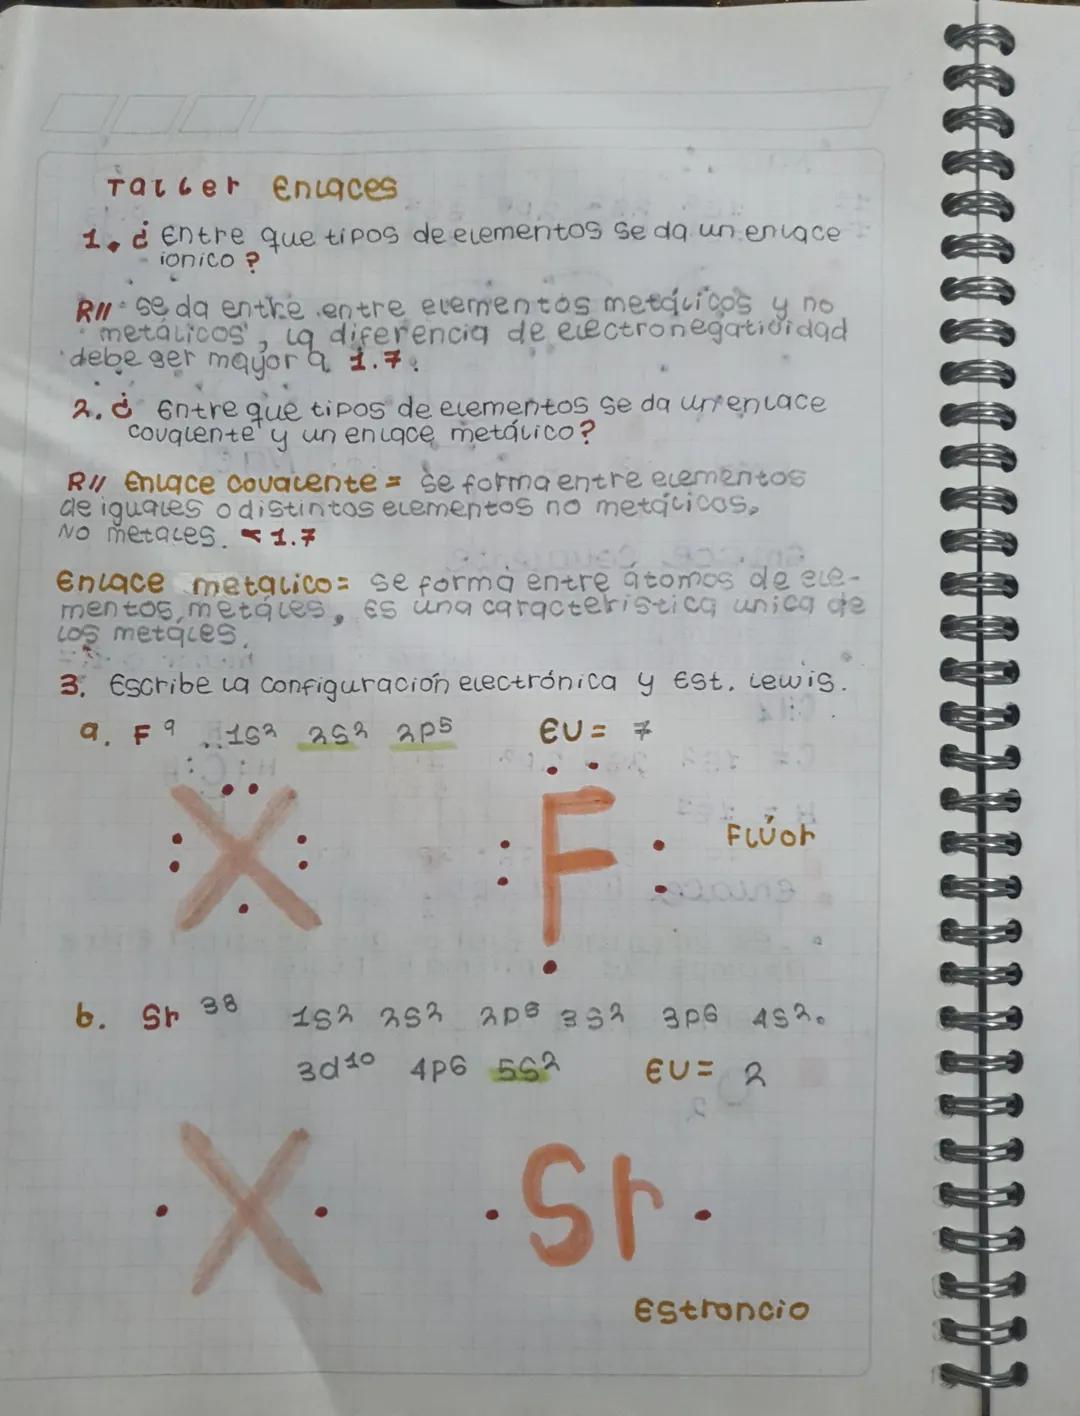 Taller Enlaces
1. ¿ Entre que tipos de elementos se da un enlace
ionico ?
R// se da entre entre elementos metálicos y no
metálicos, la diferencia de electronegatividad
debe ser mayor a 1.7.
2. ¿ Entre que tipos de elementos se da un enlace
covalente y un enlace metálico?
R// Enlace covalente = se forma entre elementos
de iguales o distintos elementos no metálicos,
NO metales. < 1.7
Enlace metalico = se forma entre átomos de ele-
mentos metales, es una caracteristica unica de
los metales.
3. Escribe la configuración electrónica y Est. Lewis.
a. F⁹ 1s² 2s² 2p⁵ EV = 7
X F Flúor
b. Sr ³⁸ 1s² 2s² 2p⁶ 3s² 3p⁶ 4s².
3d¹⁰ 4p6 5s² EV = 2
X Sr
Estroncio